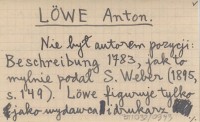 LÖWE Anton.
Nie był autorem pozycji:
Beschreibung 1783, jak to
mylnie podał S. Weber (1895,
s. 149). Löwe figuruje tylko
jako wydawca i drukarz